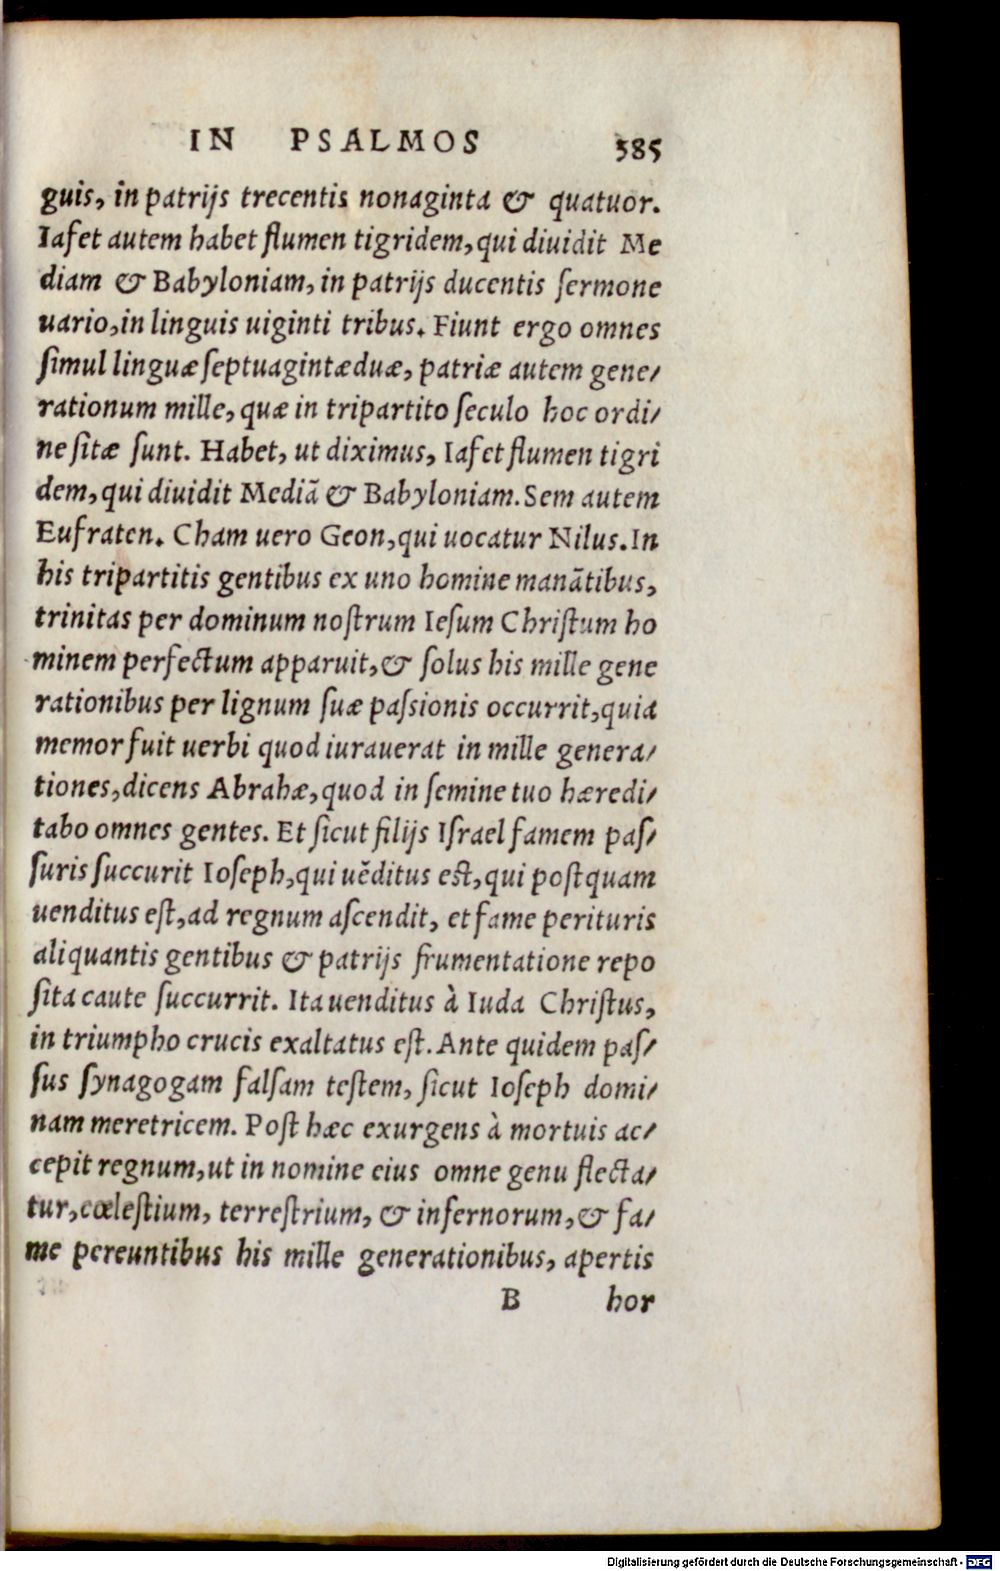 IN PSALMOS 385
guis, in patrijs trecentis nonaginta & quatuor.
Iafet autem habet flumen tigridem, qui diuidit Me
diam & Babyloniam, in patrijs ducentis ſermone
uario, in linguis uiginti tribus. Fiunt ergo omnes
ſimul linguæ ſeptuagintæduæ, patriæ autem gene/
rationum mille, quæ in tripartito ſeculo hoc ordi/
ne ſitæ ſunt. Habet, ut diximus, Iafet flumen tigri
dem, qui diuidit Mediã & Babyloniam. Sem autem
Eufraten. Cham uero Geon, qui uocatur Nilus. In
his tripartitis gentibus ex uno homine manãtibus,
trinitas per dominum noſtrum Ieſum Chriſtum ho
minem perfectum apparuit, & ſolus his mille gene
rationibus per lignum ſuæ paſsionis occurrit, quia
memor fuit uerbi quod iurauerat in mille genera/
tiones, dicens Abrahæ, quod in ſemine tuo hæredi/
tabo omnes gentes. Et ſicut filijs Iſrael famem paſ/
ſuris ſuccurit Ioſeph, qui uẽditus eſt, qui poſtquam
uenditus eſt, ad regnum aſcendit, et fame perituris
aliquantis gentibus & patrijs frumentatione repo
ſita caute ſuccurrit. Ita uenditus à Iuda Chriſtus,
in triumpho crucis exaltatus eſt. Ante quidem paſ/
ſus ſynagogam falſam teſtem, ſicut Ioſeph domi/
nam meretricem. Poſt hæc exurgens à mortuis ac/
cepit regnum, ut in nomine eius omne genu flecta/
tur, cœleſtium, terreſtrium, & infernorum, & fa/
me pereuntibus his mille generationibus, apertis
B hor
Digitalisierung gefördert durch die Deutsche Forschungsgemeinschaft - DFG